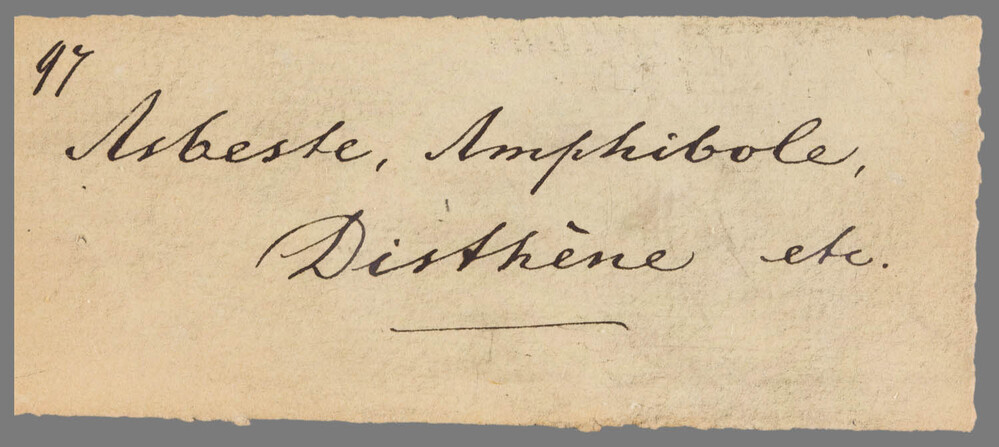 97
Asbeste, Amphibole,
Disthène etc.